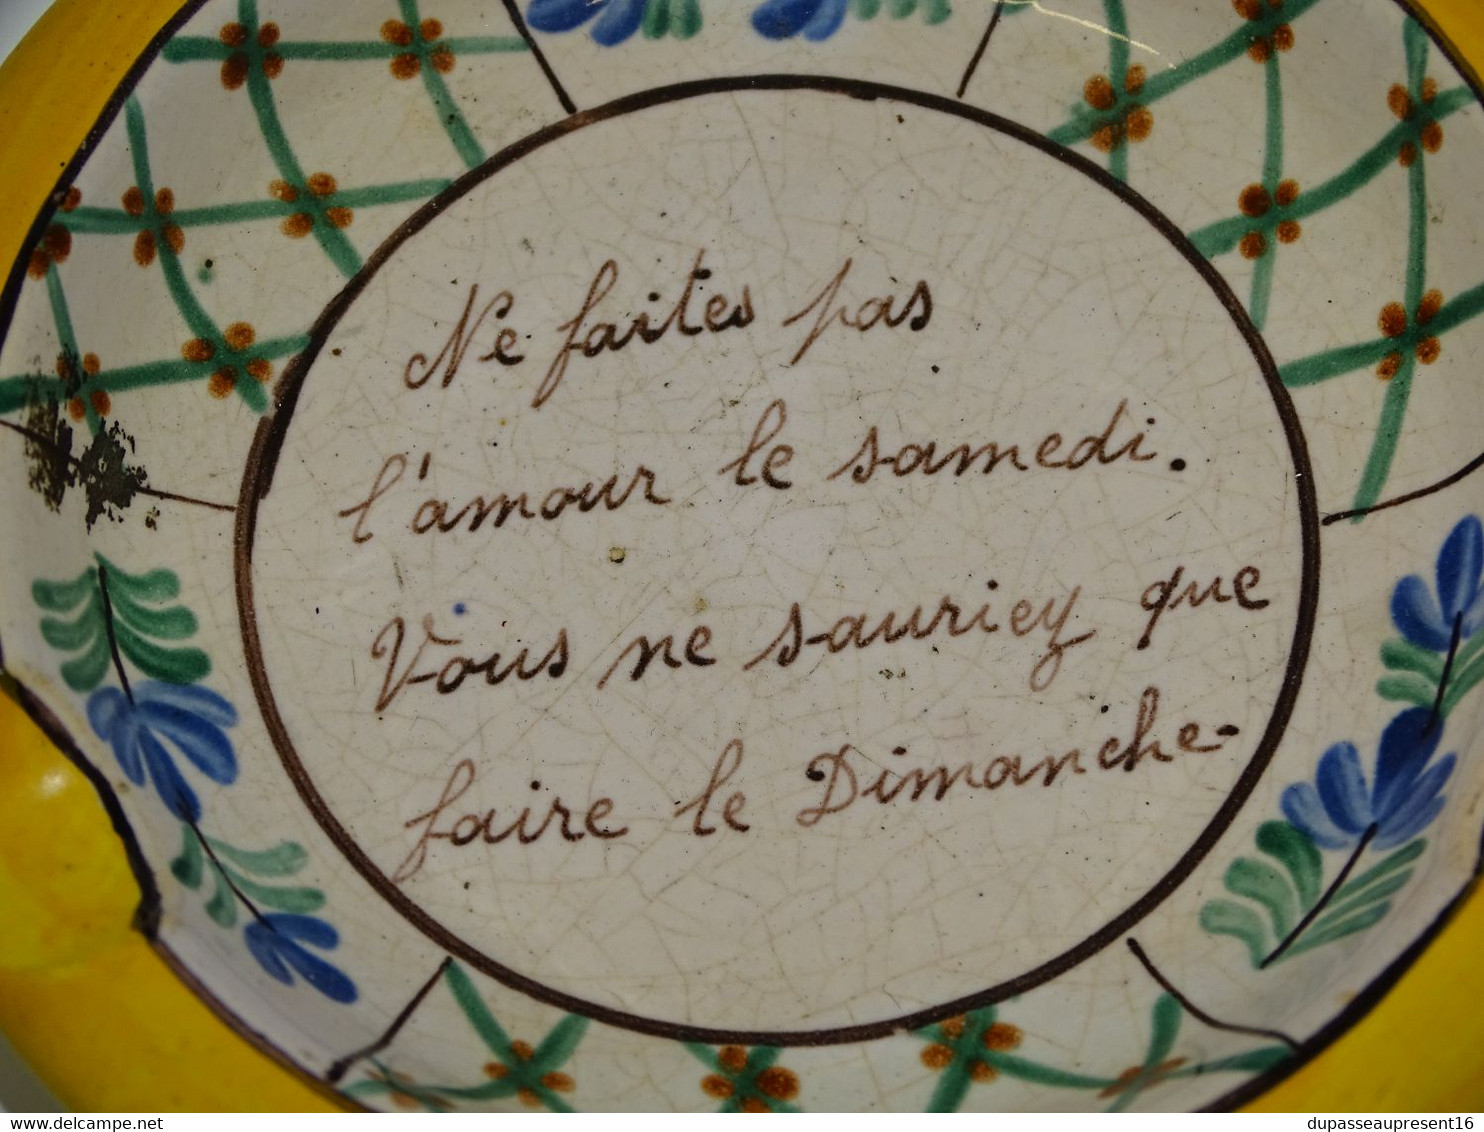 Ne faites pas
l'amour le samedi.
Vous ne sauriez que
faire le Dimanche-
www.delcampe.net
dupasseaupresent16